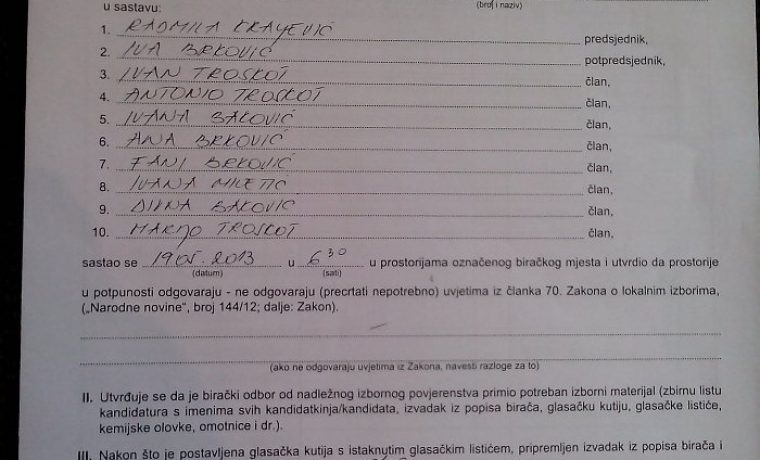 u sastavu:
(broj i naziv)
1. RADMILA KRALJEVIĆ predsjednik,
2. IVA BRKOVIĆ potpredsjednik,
3. IVAN TROSKOT član,
4. ANTONIO TROSKOT član,
5. IVANA BAKOVIĆ član,
6. ANA BRKOVIĆ član,
7. FANI BRKOVIĆ član,
8. IVANA MILETIĆ član,
9. DIVNA BAKOVIĆ član,
10. TROSKOT član,
sastao se 19.05.2013 u 6 30 u prostorijama označenog biračkog mjesta i utvrdio da prostorije
(datum) (sati)
u potpunosti odgovaraju - ne odgovaraju (precrtati nepotrebno) uvjetima iz članka 70. Zakona o lokalnim izborima,
(„Narodne novine“, broj 144/12; dalje: Zakon).
(ako ne odgovaraju uvjetima iz Zakona, navesti razloge za to)
II. Utvrđuje se da je birački odbor od nadležnog izbornog povjerenstva primio potreban izborni materijal (zbirnu listu
kandidatura s imenima svih kandidatkinja/kandidata, izvadak iz popisa birača, glasačku kutiju, glasačke listiće,
kemijske olovke, omotnice i dr.).
III. Nakon što je postavljena glasačka kutija s istaknutim glasačkim listićem, pripremljen izvadak iz popisa birača i